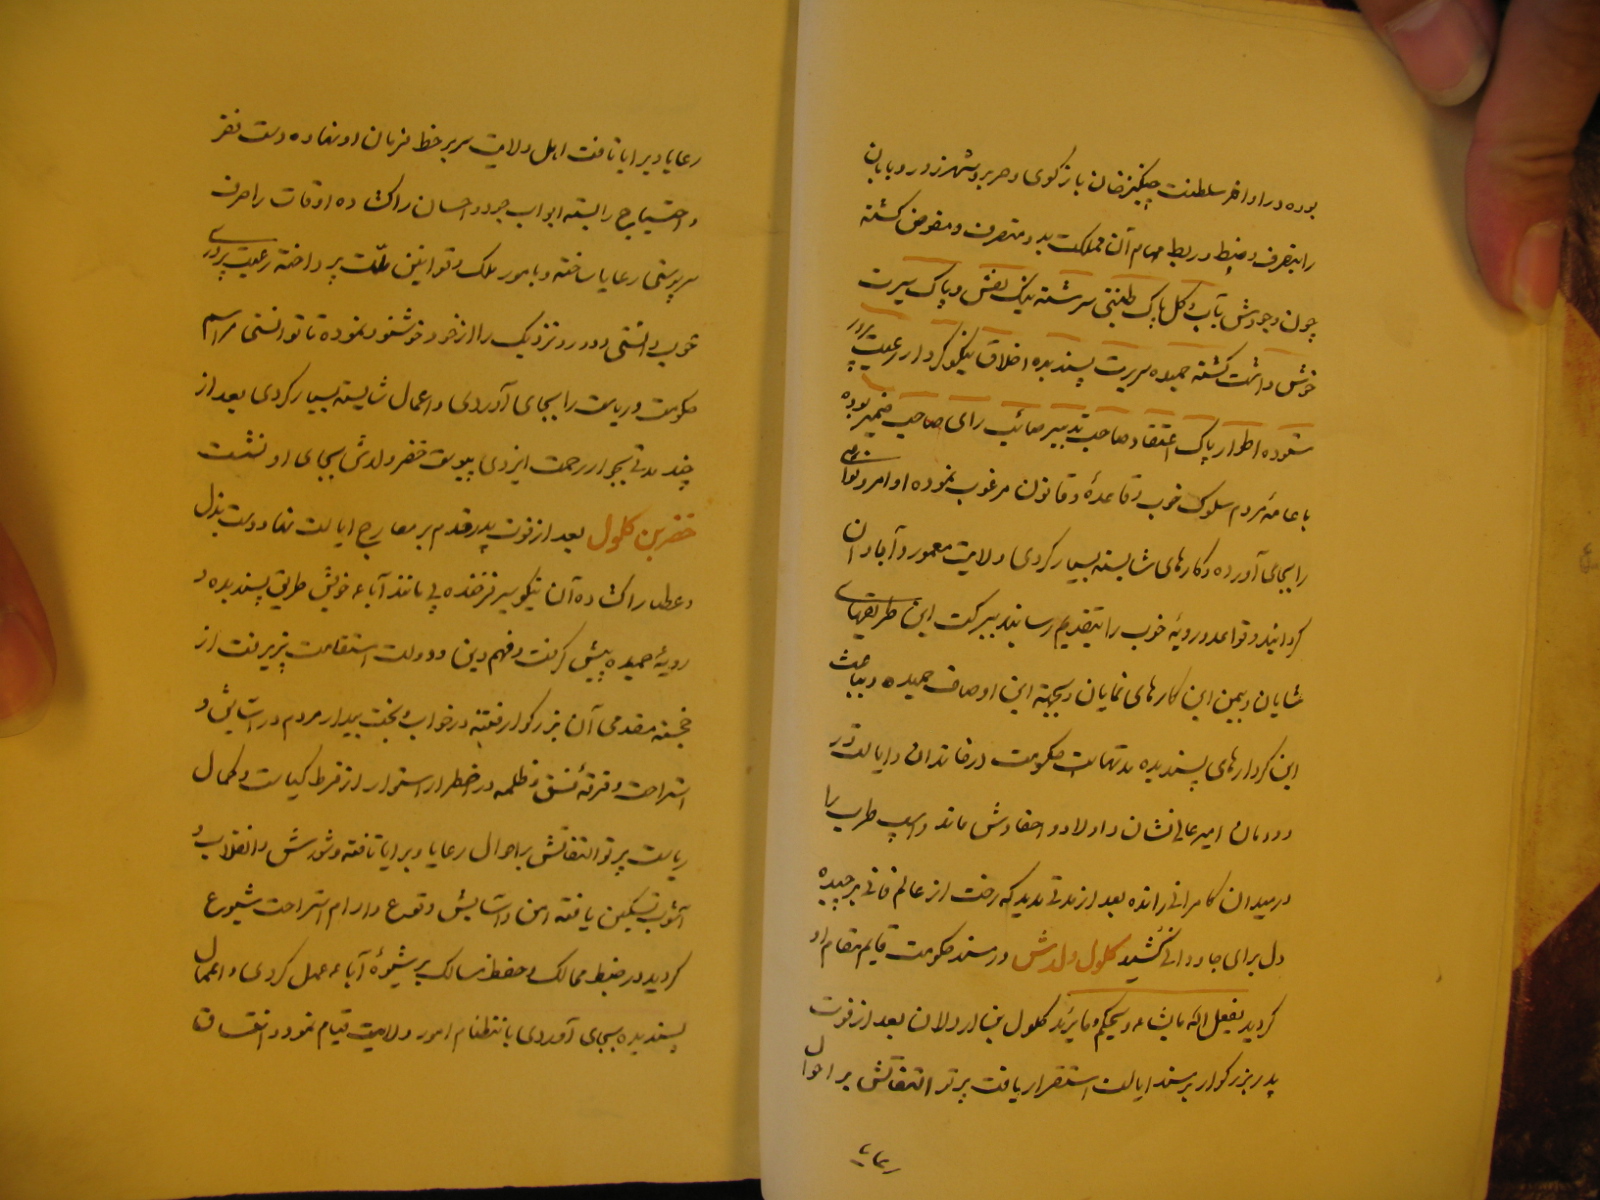 بوده در اواخر سلطنت چنگیزخان بازکوی و حریر و شهرزور و بابان
را بتصرف و ضبط و ربط مهام آن مملکت ید و متصرف و مفوض کشته
چون وجودش بآب و کل پاک طینتی سرشته نیک نفس و پاک سیرت
خوش داشت کشته حمیده سریرت پسندیده اخلاق نیکو کردار رعیت پرور
ستوده اطوار پاک اعتقاد صاحب تدبیر صائب رای صاحب ضمیر بوده
با عامهٔ مردم سلوک خوب و قاعدهٔ و قانون مرغوب نموده اوامر و نواهی
را بجای آورده و کارهای شایسته بسیار کردی و ولایت معمور و آبادان
کردانید و قواعد و رویهٔ خوب را بتقدیم رسانید ببرکت این طریقهای
شایان و بیمن این کارهای نمایان و بجهة این اوصاف حمیده و بباعث
این کردارهای پسندیده مدتها است حکومت در خاندان و ایالت در
دودمان امیر عالی نشان و اولاد و احفادش ماند و اسپ طرب را
در میدان کامرانی رانده بعد از مدتی مدید که رخت از عالم فانی برچیده
دل برای جاودانی کشید کلول ولدش در مسند حکومت قایم مقام او
کردید یفعل الله ما یشاء و یحکم ما یرید کلول بن اردلان بعد از فوت
پدر بزرکوار بر مسند ایالت استقرار یافت پرتو التفاتش بر احوال
رعایا
رعایا و برایا تافت اهل ولایت سر بر خط فرمان او نهاده دست فقر
و احتیاج را بسته ابواب جود و احسان را کشاده اوقات را صرف
سرپرستی رعایا ساخته و بامور ملک و قوانین ملت پرداخته رعیت پروری
خوب دانستی و دور و نزدیک را از خود خوشنود نموده تا توانستی مراسم
حکومت و ریاست را بجای آوردی و اعمال شایسته بسیار کردی بعد از
چند مدتی بجوار رحمت ایزدی پیوست خضر ولدش بجای او نشست
خضر بن کلول بعد از فوت پدر قدم بر معارج ایالت نهاد و دست بذل
و عطا را کشاده آن نیکو سیر فرخنده پی مانند آباء خویش طریق پسندیده و
رویهٔ حمیده پیش کرفت و فهم دین و دولت استقامت پذیرفت از
خجسته مقدمی آن بزرکوار فتنه در خواب و بخت بیدار مردم در آسایش و
استراحت و فرقهٔ فسق و ظلمه در اضطرار از فرط کیاست و کمال
ریاست پرتو التفاتش بر احوال رعایا و برایا تافته و شورش و انقلاب و
آشوب تسکین یافته امن و آسایش وقوع و آرام و استراحت شیوع
کردید در ضبط ممالک و حفظ مسالک بر شیوهٔ آباء عمل کردی و اعمال
پسندیده بجای آوردی بانتظام امور ولایت قیام نمود و انفاق